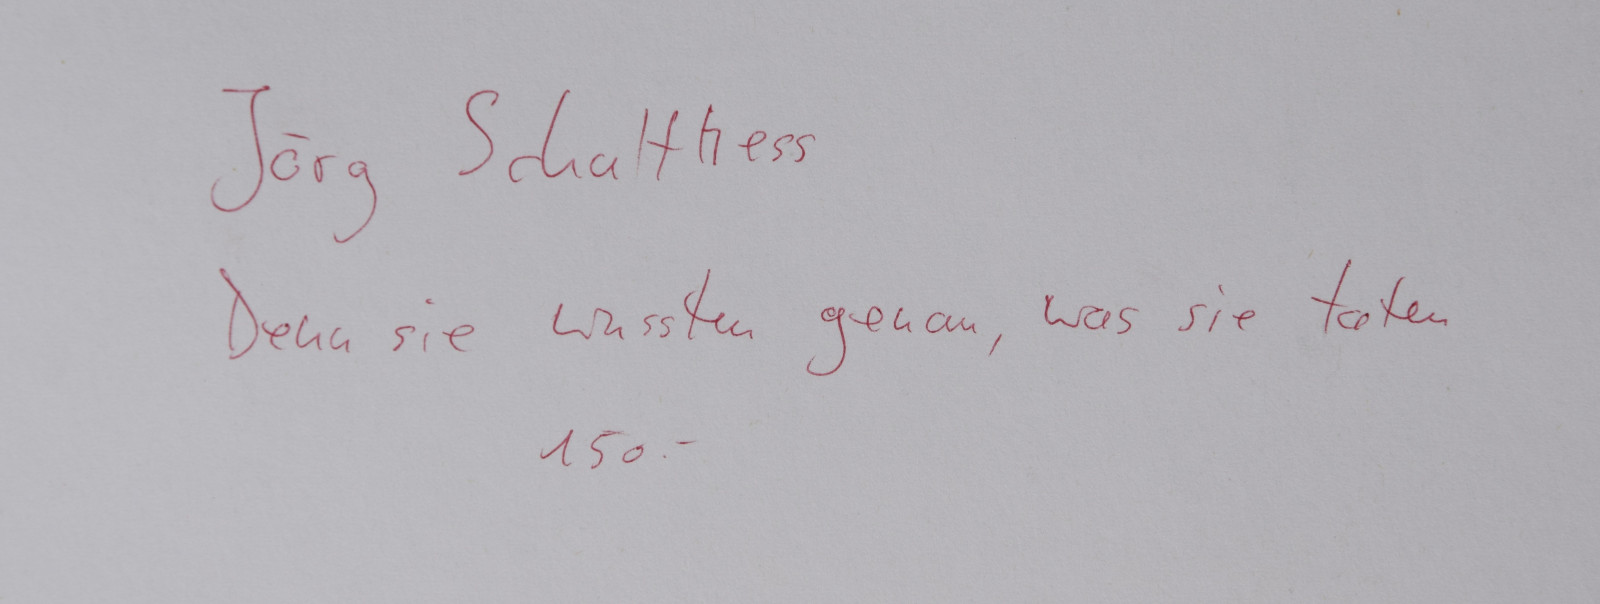 Jörg Schalthess
Denn sie wussten genau, was sie taten
150.-